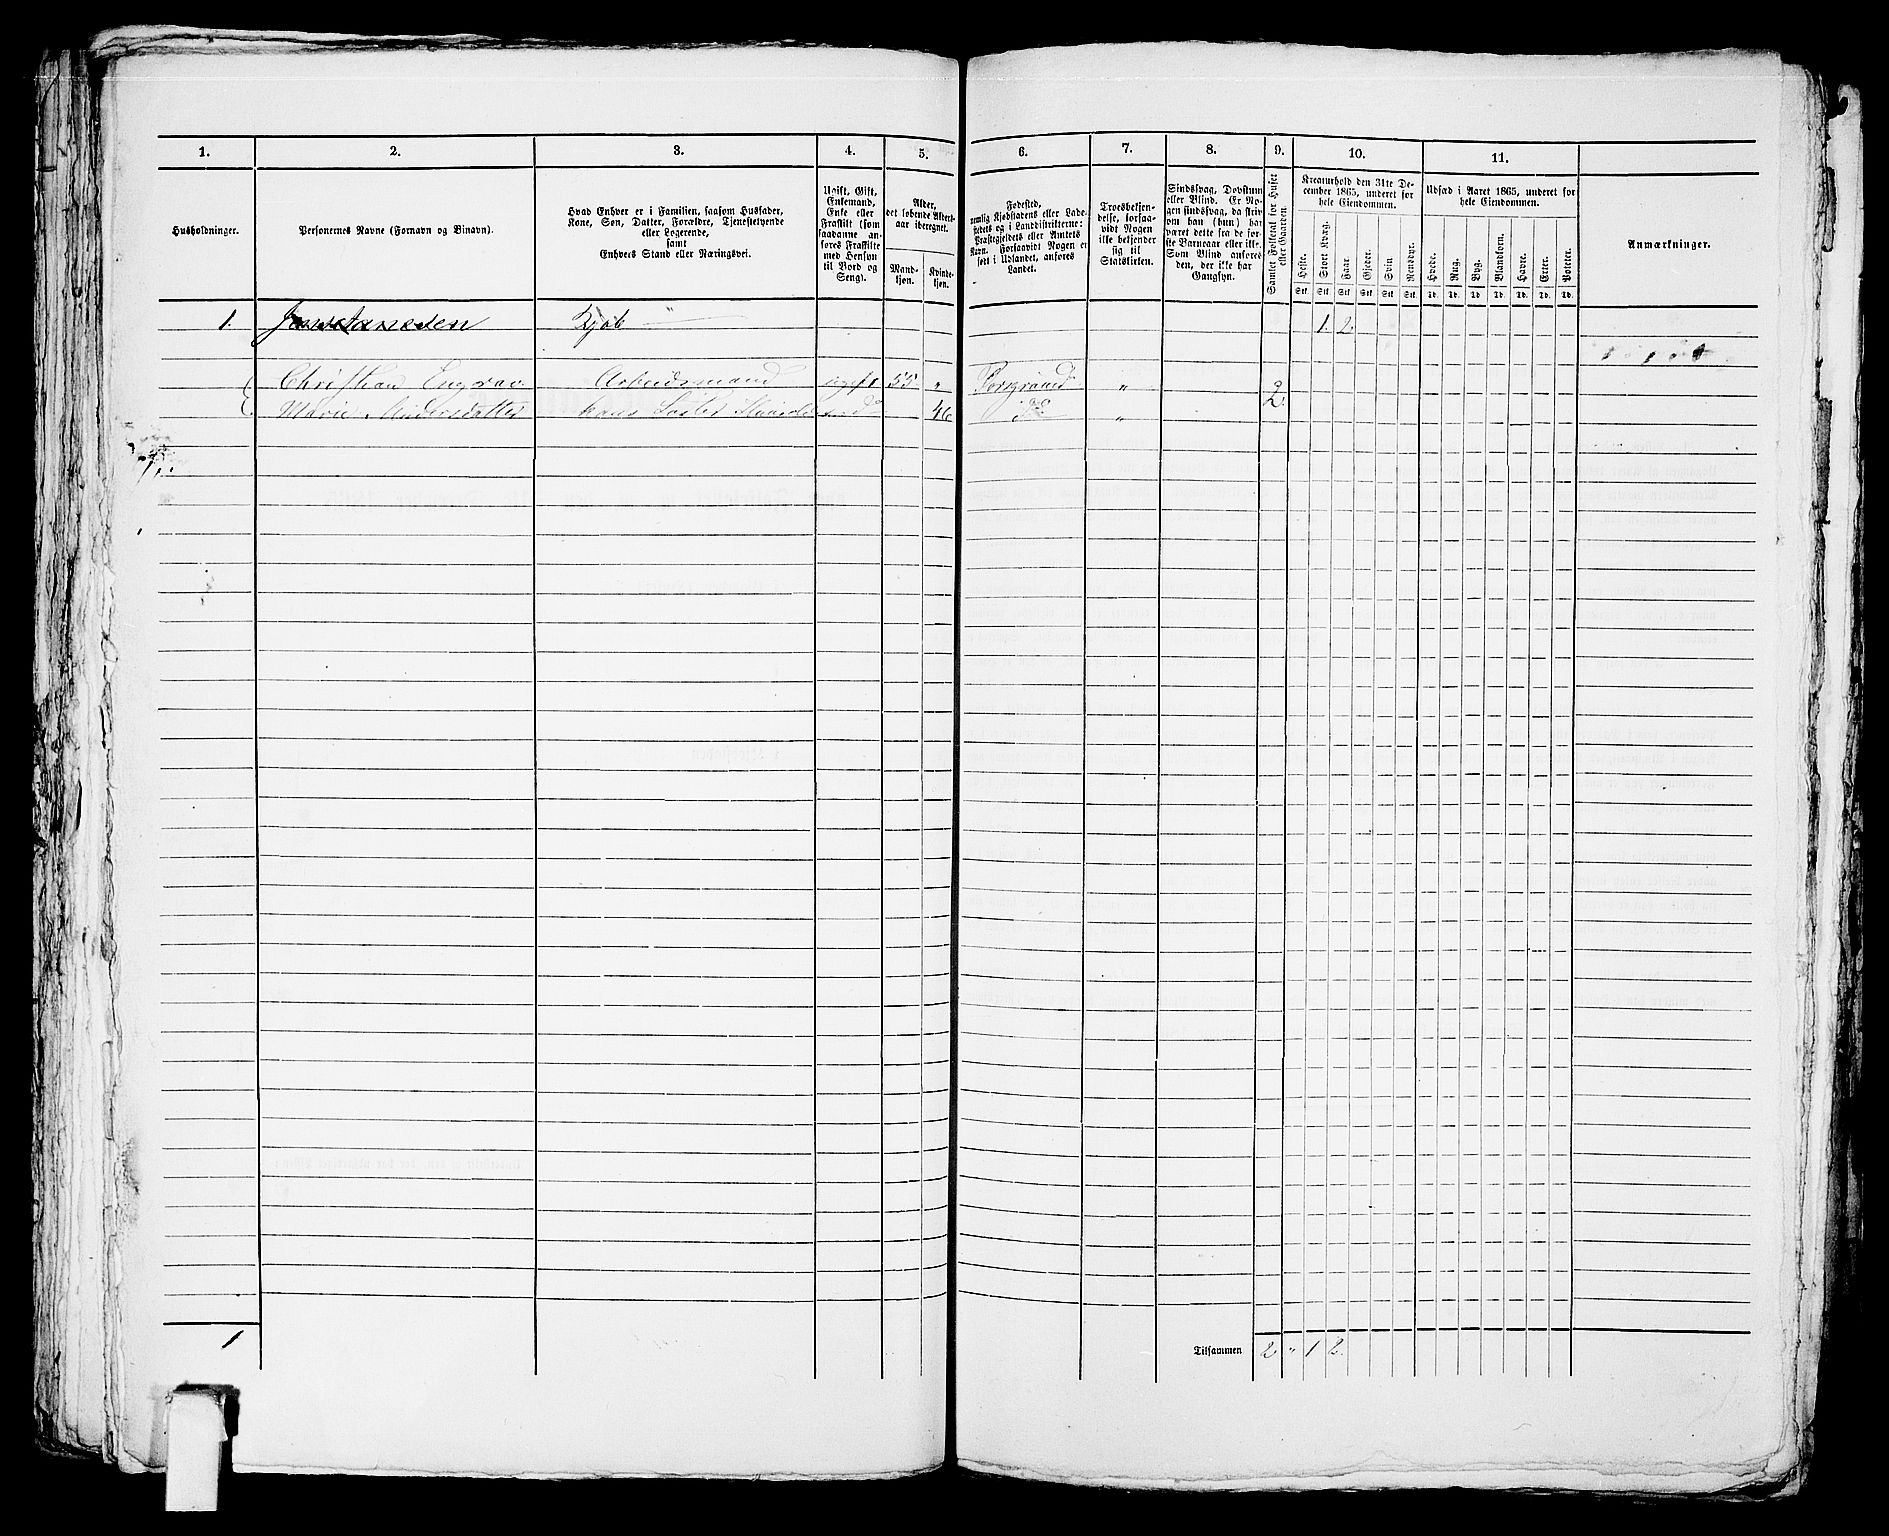 1. 2. 3. 4. 5. 6. 7. 8. 9. 10. 11.
Husholdninger.
Personernes Navne (Fornavn og Binavn).
Hvad Enhver er i Familien, saasom Husfader,
Kone, Søn, Datter, Forældre, Tjenestetyende
eller Logerende,
samt
Enhvers Stand eller Næringsvei.
Ugift, Gift,
Enkemand,
Enke eller
Fraskilt (som
saadanne an-
føres Fraskilte
med Hensyn
til Bord og
Seng).
Alder,
det løbende Alders-
aar iberegnet.
Mand-
kjøn.
Kvinde-
kjøn.
Fødested,
nemlig Kjøbstadens eller Lade-
stedets og i Landdistrikterne:
Præstegjeldets eller Amtets
Navn. Forsaavidt Nogen er
født i Udlandet, anføres
Landet.
Troesbekjen-
delse, forsaa-
vidt Nogen
ikke bekjender
sig til
Statskirken.
Sindssvag, Døvstum
eller Blind. Er No-
gen sindssvag, da skriv
om han (hun) har
været dette fra de før-
ste Barneaar eller ikke.
Som Blind anføres
den, der ikke har
Gangsyn.
Samlet Folketal for Huset
eller Gaarden.
Kreaturhold den 31te De-
cember 1865, underet for
hele Eiendommen.
Heste. Stort Kvæg. Faar. Gjeder. Svin Rensdyr.
Stk. Stk. Stk. Stk. Stk. Stk.
Udsæd i Aaret 1865, underet for
hele Eiendommen.
Hvede. Rug. Byg. Blandkorn. Havre. Erter. Poteter.
Td. Td. Td. Td. Td. Td. Td.
Anmærkninger.
1. 1. 2.
Christian Engrav Arbeidsmand ugift 55 " Porsgrund " 2.
Marie Andersdatter hans Søster do 46 do "
1 Tilsammen 2 " 1 2